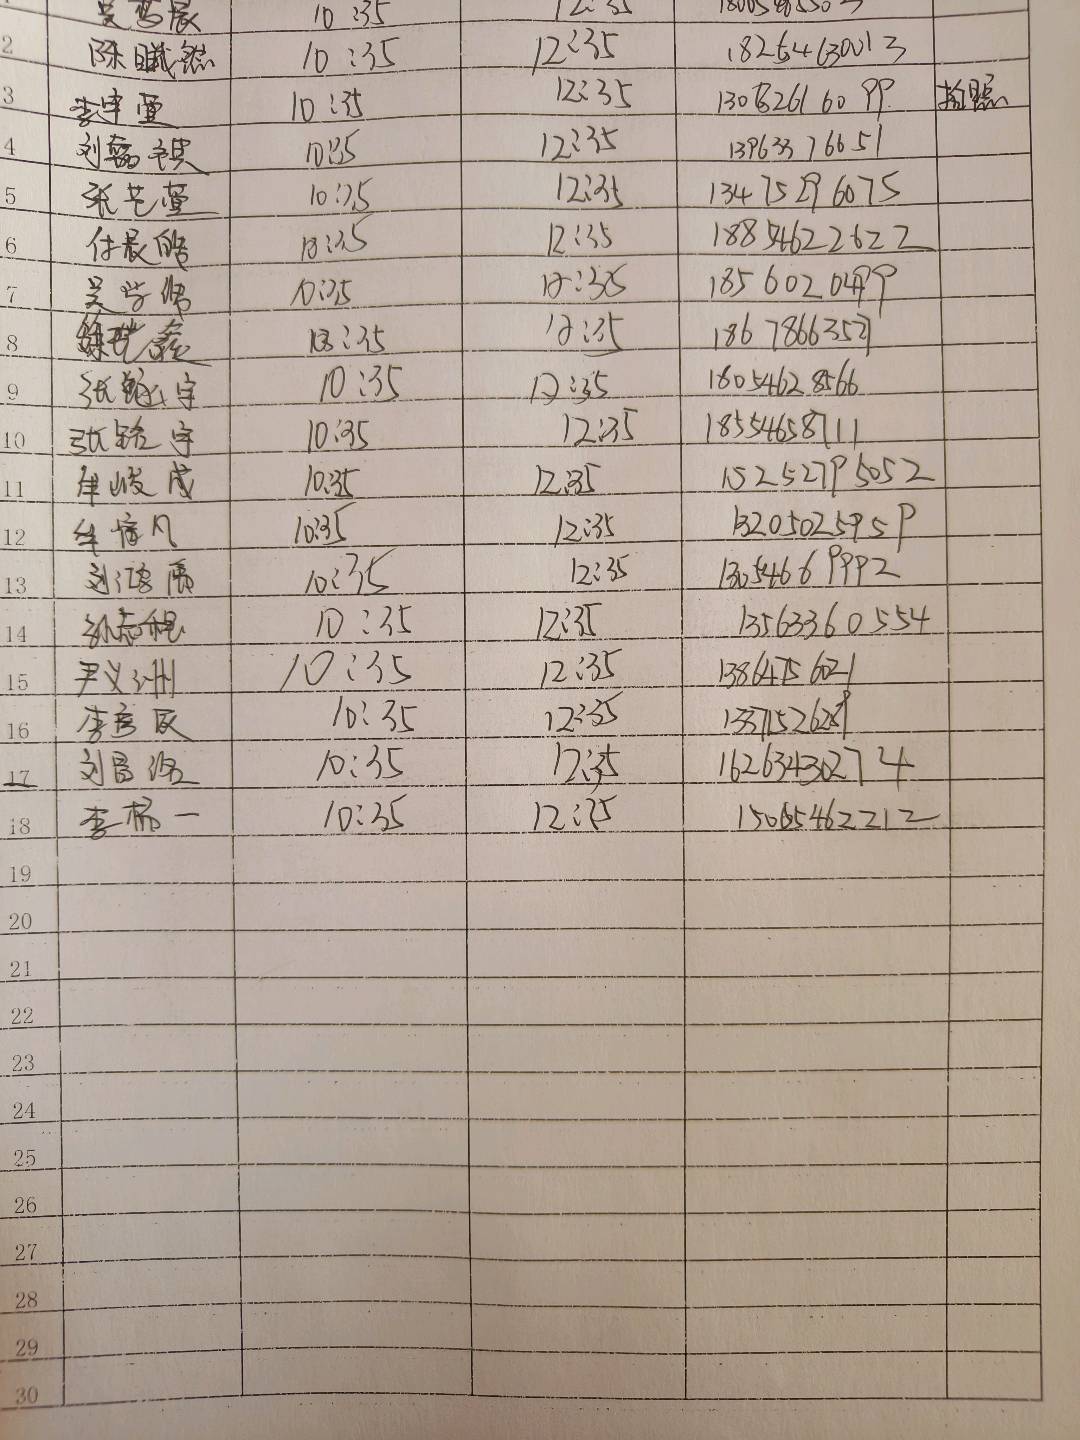 10:35 12:35
2 陈 10:35 12:35 18254630013
3 李宇萱 10:35 12:35 拍照
4 刘 祺 10:35 12:35 13963376651
5 张艺萱 10:35 12:35 13475296075
6 付晨皓 10:35 12:35 18854622622
7 吴 10:35 12:35 1856020499
8 10:35 12:35
9 张 宇 10:35 12:35 18054628566
10 张铭宇 10:35 12:35 18554658711
11 牟峻成 10:35 12:35 15252795052
12 凡 10:35 12:35 13205025959
13 刘 10:35 12:35 13054669992
14 孙志程 10:35 12:35 13563360554
15 尹义洲 10:35 12:35 13864756021
16 李彦辰 10:35 12:35
17 刘昌 10:35 12:35 16263430274
18 李 一 10:35 12:35 15065462212
19
20
21
22
23
24
25
26
27
28
29
30